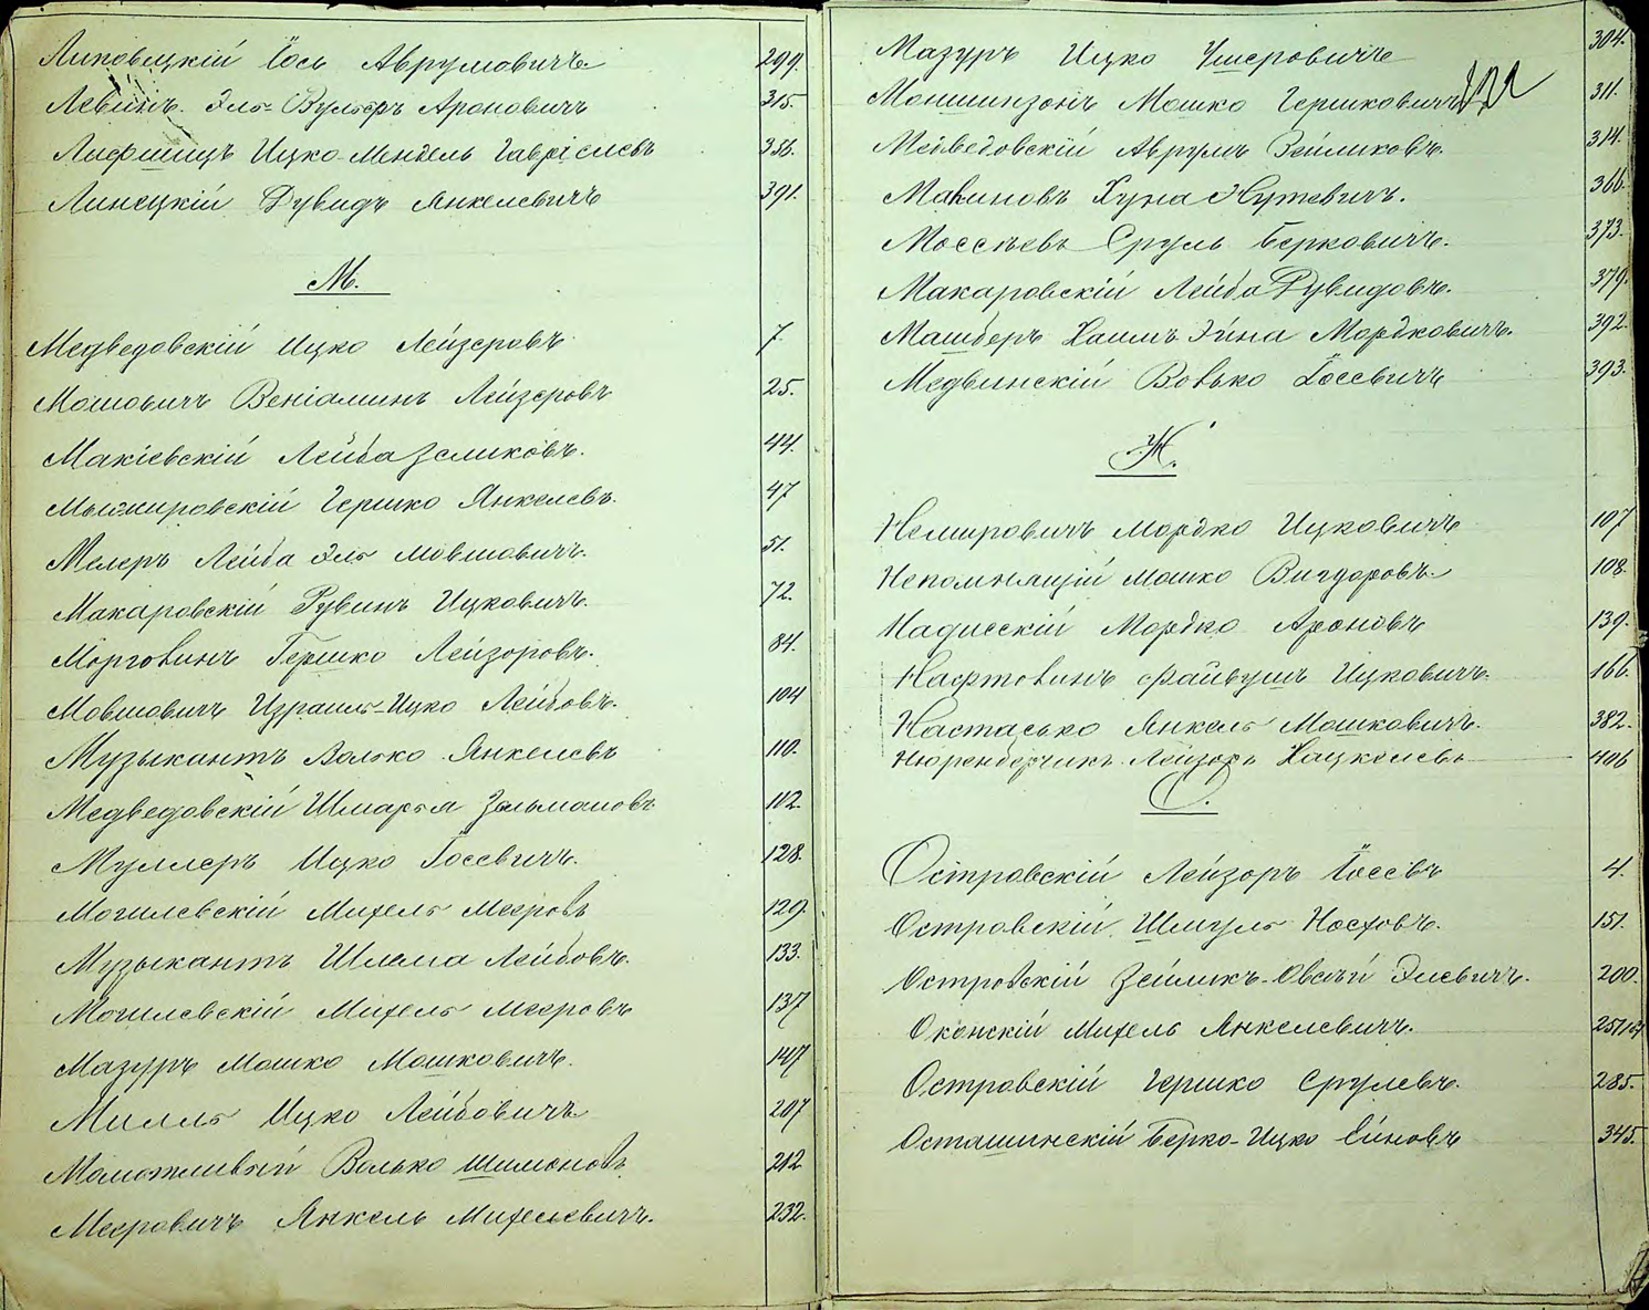 Липовецкій Іось Аврумовичъ 299.
Левинъ Эль-Вульфъ Ароновичъ 315.
Лифшицъ Ицко-Мендель Гавріелевъ 356.
Линецкій Дувидъ Янкелевичъ 391.
М.
Медведовскій Ицко Лейзеровъ 7.
Мошовичъ Веніаминъ Лейзеровъ 25.
Макіевскій Лейба Зеликовъ. 44.
Мышировскій Гершко Янкелевъ. 47
Мелеръ Лейба Эль Мовшовичъ. 51.
Макаровскій Рувинъ Ицковичъ. 72.
Морговинъ Гершко Лейзоровъ. 84.
Мовшовичъ Израиль-Ицко Лейбовъ. 104
Музыкантъ Волько Янкелевъ 110.
Медведовскій Шмарья Зальмановъ 112.
Муллеръ Ицко Іосевичъ. 128.
Могилевскій Михель Мееровъ 129.
Музыкантъ Шлема Лейбовъ. 133.
Могилевскій Михель Мееровъ 137
Мазуръ Мошко Мошковичъ. 147
Милль Ицко Лейбовичъ 207
Молотливый Волько Шимоновъ 212
Меровичъ Янкель Михелевичъ. 232.
Мазуръ Ицко Ушеровичъ 304.
Моншинзонъ Мошко Гершковичъ 311.
Медведовскій Аврумъ Зейликовъ. 314.
Махиновъ Хуна Нутевичъ. 366.
Моссѣевъ Сруль Берковичъ. 373.
Макаровскій Лейба Дувидовъ. 379.
Машберъ Хаимъ Эйна Мордковичъ. 392.
Медвинскій Вовько Іосевичъ 393.
Н.
Немировичъ Мордко Ицковичъ 107
Непомнящій Мошко Вигдоровъ 108.
Надисскій Мордко Ароновъ 139.
Нафтовинъ Файвушъ Ицковичъ. 166.
Настасько Янкель Мошковичъ. 382.
Нюренберчикъ Лейзоръ Хацкелевъ 406
О.
Островскій Лейзоръ Іосевъ 4.
Островскій Шмуль Носховъ. 151.
Островскій Зейликъ-Овсѣй Элевичъ. 200.
Оконскій Михель Янкелевичъ.
Островскій Гершко Срулевъ. 285.
Осташинскій Берко-Ицко Ейновъ 345.